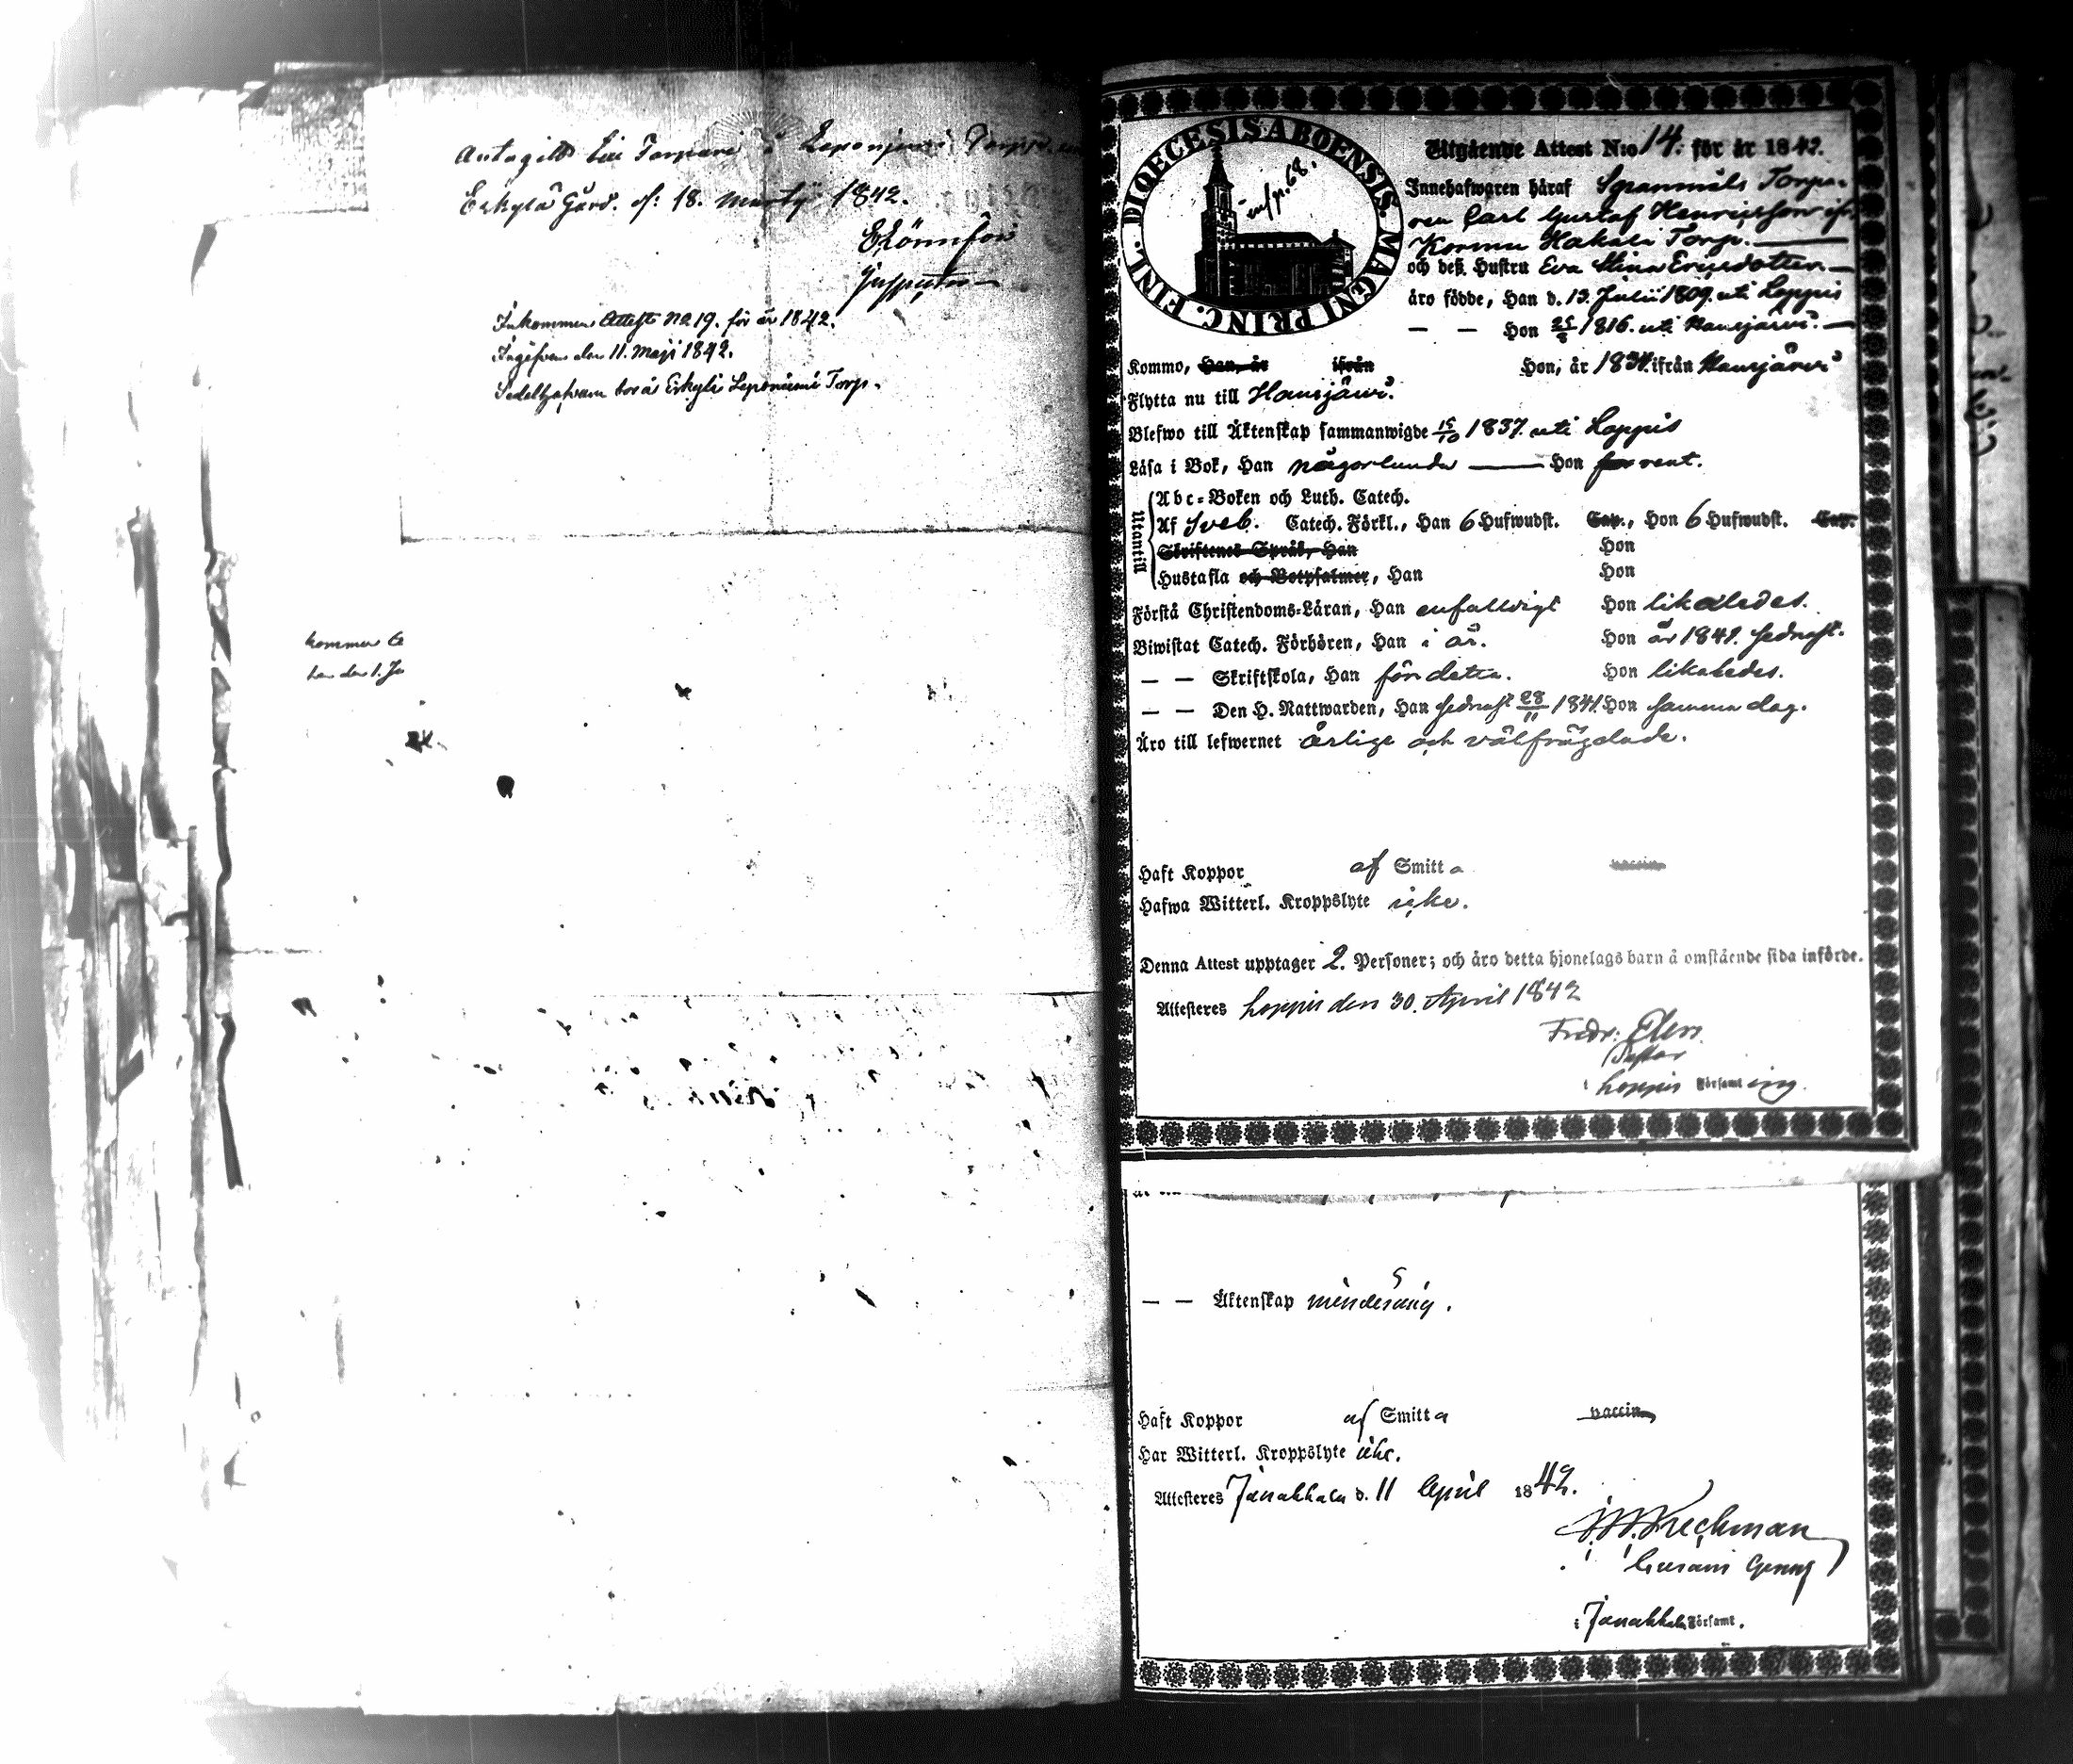 Antagits till Torpare å Leponiemi Torpp
Erkylä Gård. d: 18. Martij 1842.
Inspector
Inkommen Attest No 19. för år 1842.
Ingifven den 11. Maji 1842.
Sedelhafvaren bor å Erkylä Leponiemi Torp.
kommen
den 1. Ja
DIOECESIS ABOENSIS. MAGNI PRINC. FINL.
inf. p. 68.
Utgående Attest N:o 14. för år 1842.
Innehafwaren häraf Spannmåls Torpa-
ren Carl Gustaf Henricsson ifr.
Kormu Hakala Torp.
och deß Hustru Eva Stina Ericsdotter
äro födde, Han d. 13. Julii 1809. uti Loppis
— — Hon 1816. uti Hausjärvi.
Kommo, Han, år ifrån Hon, år 1834. ifrån Hausjärvi
Flytta nu till Hausjärvi.
Blefwo till Äktenskap sammanwigde 15/10 1837. uti Loppis
Läsa i Bok, Han någorlunda Hon rent.
Utantill
Abc-Boken och Luth. Catech.
Af Sveb. Catech. Förkl., Han 6 Hufwudst. Cap., Hon 6 Hufwudst. Cap.
Skriftenes Språk, Han Hon
Hustafla och Botpsalmer, Han Hon
Förstå Christendoms-Läran, Han enfaldigt Hon likaledes.
Biwistat Catech. Förhören, Han i år. Hon år 1841. sednast.
— — Skriftskola, Han för detta. Hon likaledes.
— — Den H. Nattwarden, Han sednast 28/11 1841. Hon samma dag.
Äro till lefwernet ärlige och välfrägdade.
Haft Koppor af Smitta vaccin
Hafwa Witterl. Kroppslyte icke.
Denna Attest upptager 2. Personer; och äro detta hjonelags barn å omstående sida införde.
Attesteres Loppis den 30. April 1842
Fredr. Elers
Pastor
i Loppis Församling.
— — Äktenskap
Haft Koppor af Smitta vaccin
Har Witterl. Kroppslyte icke.
Attesteres Janakkala d. 11 April 1842.
i Janakkala Församl.